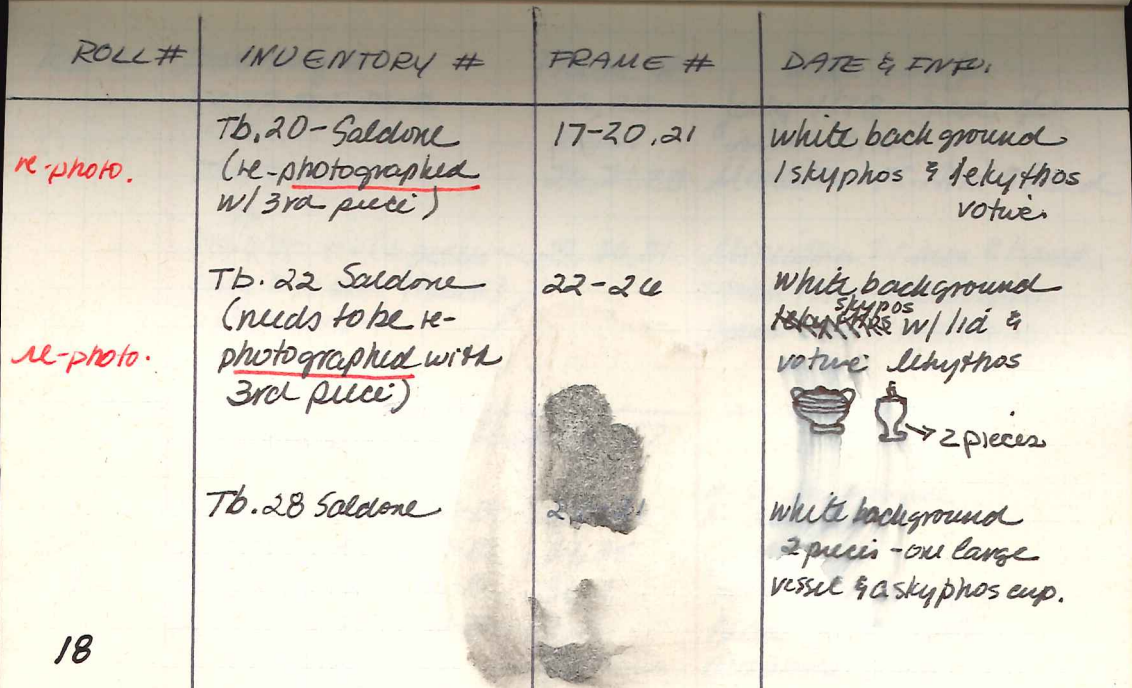 ROLL # INVENTORY # FRAME # DATE & INFO.
re-photo.
Tb.20-Saldone
(re-photographed
w/ 3rd piece)
17-20,21
white background
1 skyphos & lekythos
votive.
re-photo.
Tb. 22 Saldone
(needs to be re-
photographed with
3rd piece)
22-26
white background
skypos
w/ lid &
votive lekythos
→ 2 pieces
Tb.28 Saldone
white background
2 pieces - one large
vessel & a skyphos cup.
18